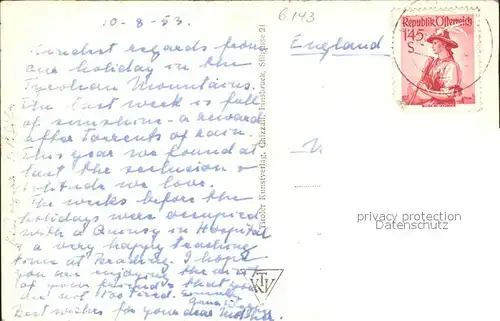 10-8-53.
6143
Kindest regards from
our holiday in the
Tyrolean Mountains.
The last week is full
of sunshine - a reward
after torrents of rain.
This year we found at
last the seclusion &
solitude we love.
The weeks before the
holidays were occupied
with a Quinsy in Hospital
& a very happy teaching
time at Reading. I hope
you are enjoying the visit
of your friends & that you
are not too tired.
Best wishes for your dear Mother.
England
Republik Österreich
1.45
S
Tiroler Kunstverlag, Chizzali, Innsbruck, Sillgasse 21
TKV
privacy protection
Datenschutz